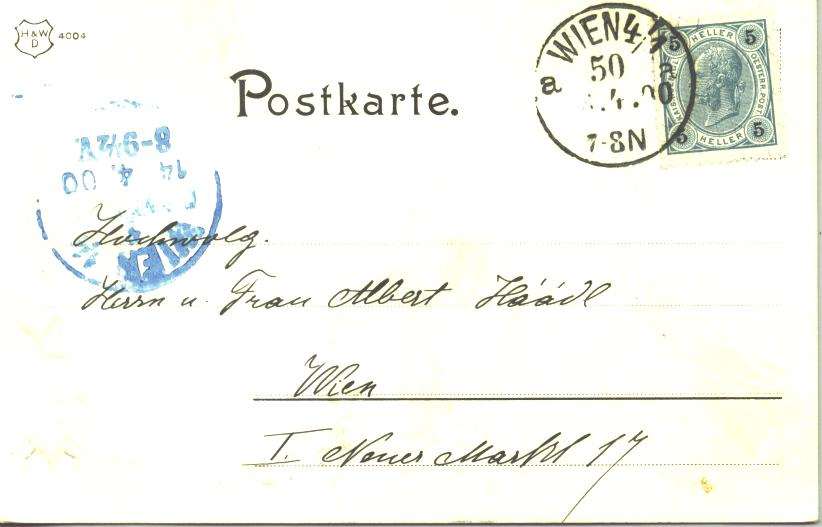 H & W
D
4004
Postkarte.
WIEN 4/1
50
a a
.4.00
7-8N
5 HELLER 5
5 HELLER 5
8-9½V
14 4. 00
WIEN
Hochwolg.
Herrn u. Frau Albert
Wien
I. Neuer Markt 17